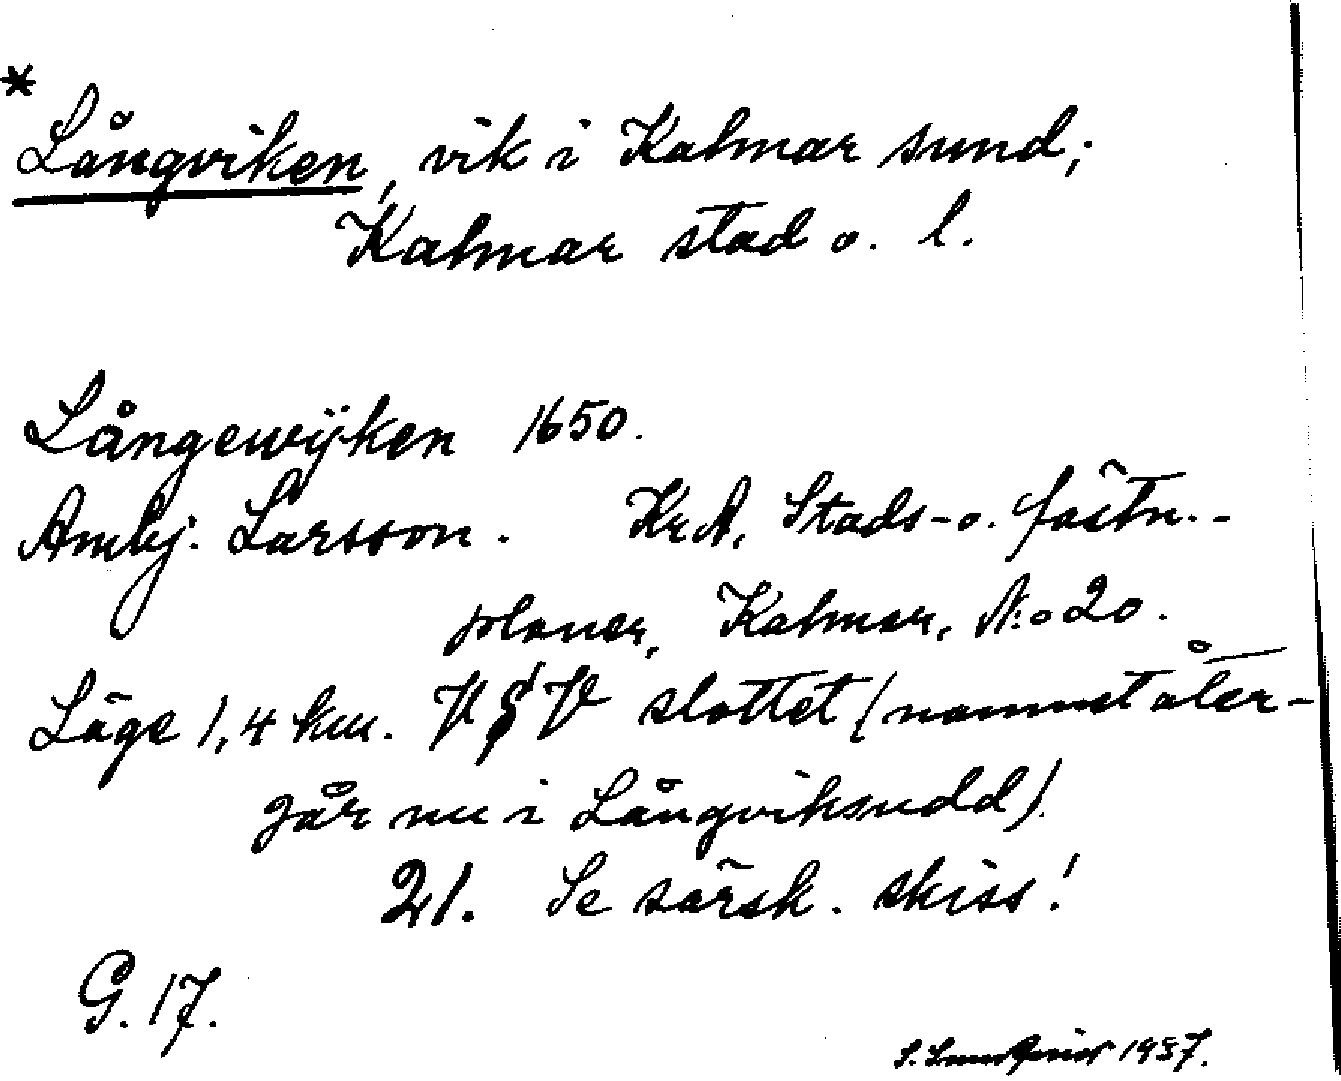 *
Långviken, vik i Kalmar sund;
Kalmar stad o. l.
Långewÿken 1650.
Ambj. Larsson. KrA, Stads- o. fästn.-
planer, Kalmar, N:o 20.
Läge 1,4 km. V slottet (namnet åter-
går nu i Långviksudd).
21. Se särsk. skiss!
G. 17.
S. 1937.